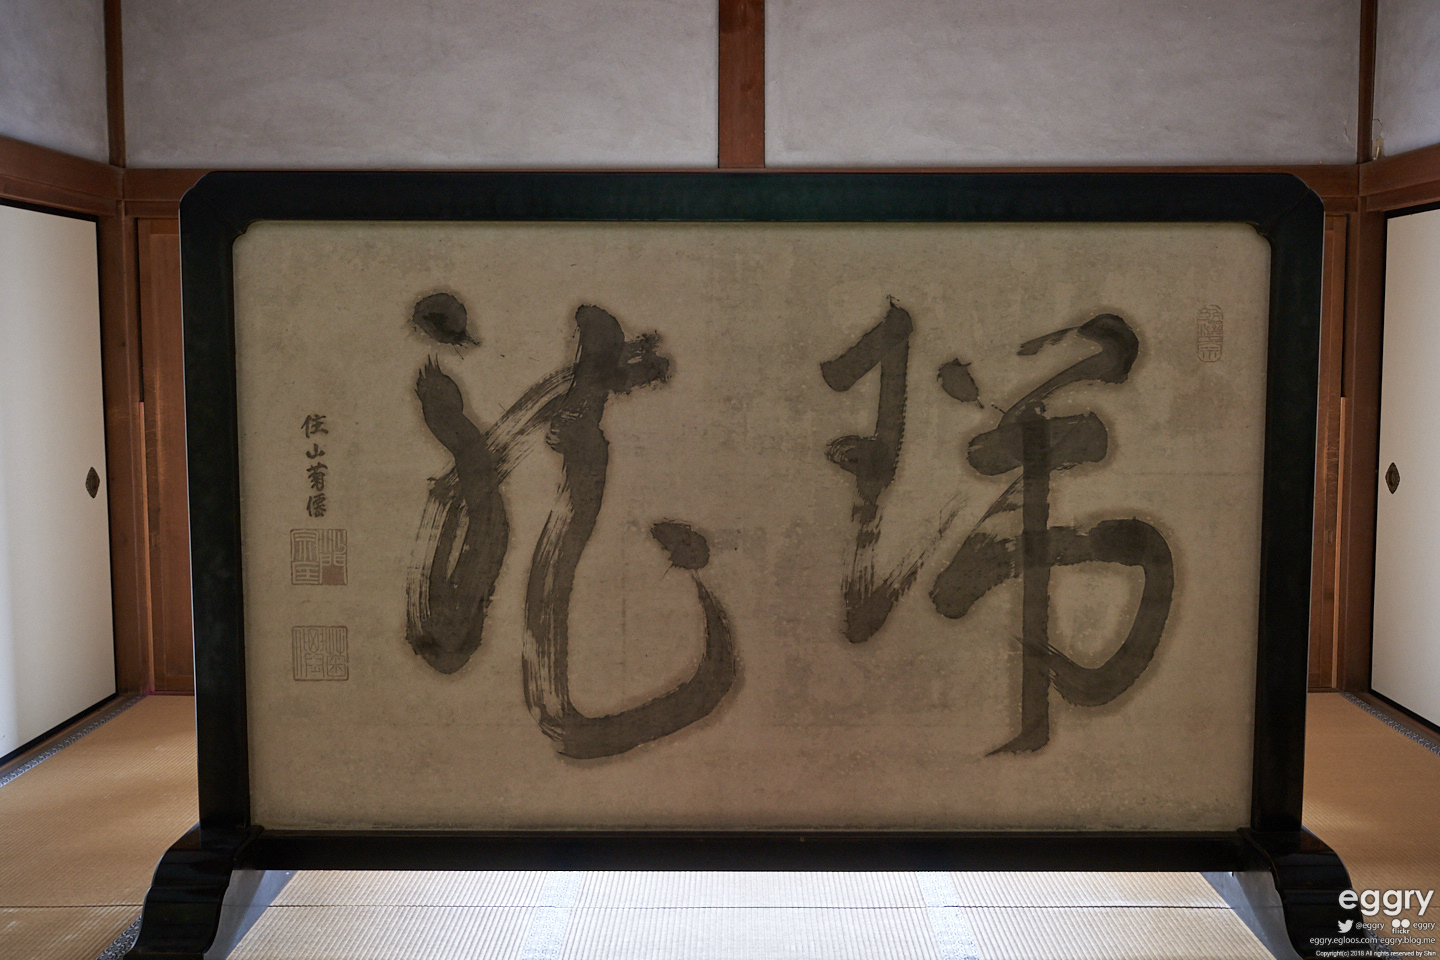 瑞龍
住山菊僊
eggry
@eggry flickr eggry
eggry.egloos.com eggry.blog.me
Copyright(c) 2018 All rights reserved by Shin